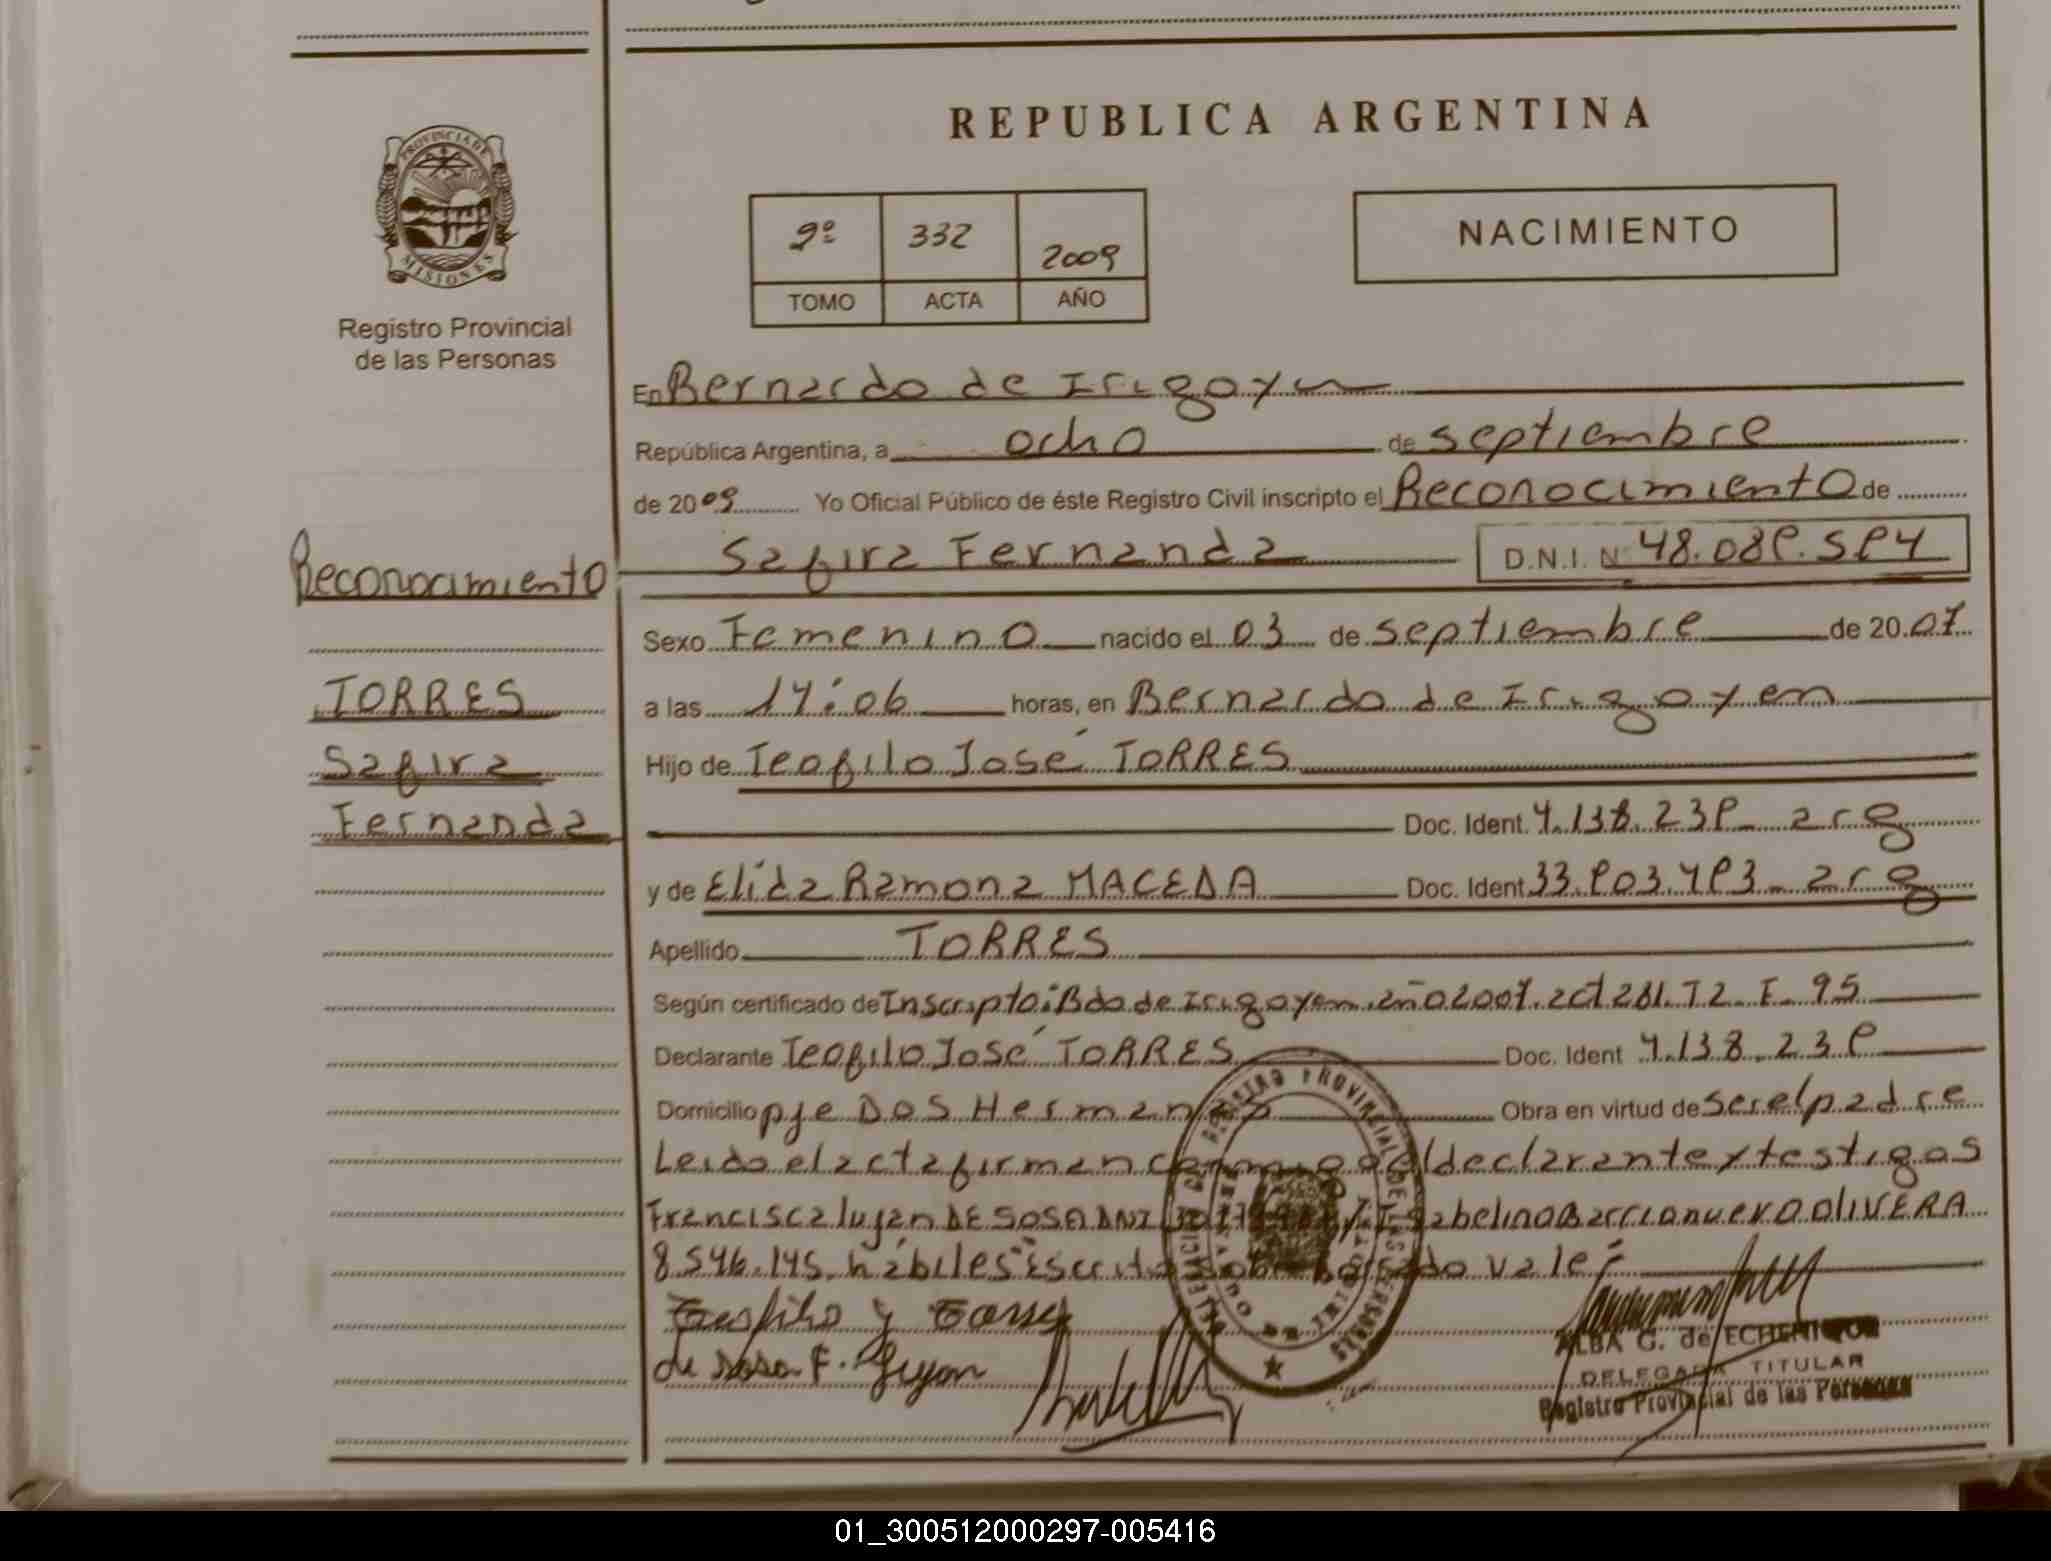 REPUBLICA ARGENTINA
PROVINCIA DE MISIONES
Registro Provincial
de las Personas
2º 332 2009
TOMO ACTA AÑO
NACIMIENTO
En Bernardo de Irigoyen
República Argentina, a ocho de septiembre
de 2009 Yo Oficial Público de éste Registro Civil inscripto el Reconocimiento de
Safira Fernanda D.N.I. Nº 48.089.594
Reconocimiento
TORRES
Safira
Fernanda
Sexo Femenino nacido el 03 de septiembre de 2007
a las 14:06 horas, en Bernardo de Irigoyen
Hijo de Teofilo José TORRES
Doc. Ident. 4.138.239_ arg
y de Elida Ramona MACEDA Doc. Ident 33.903.493_ arg
Apellido TORRES
Según certificado de Inscripto: Bdo de Irigoyen año 2007. act 281. T2_ F_ 95
Declarante Teofilo José TORRES Doc. Ident 4.138.239
Domicilio pje Dos Hermanas Obra en virtud de ser el padre
Leido el acta firman conmigo el declarante y testigos
Francisca lujan DE SOSA DNI y Isabelino Barrionuevo OLIVERA
8.546.145. hábiles "Escrito sobre borrado vale"
Teofilo J Torres
de sosa F. Lujan
REGISTRO PROVINCIAL DE LAS PERSONAS
ALBA G. de ECHENIQUE
DELEGADA TITULAR
Registro Provincial de las Personas
01_300512000297-005416